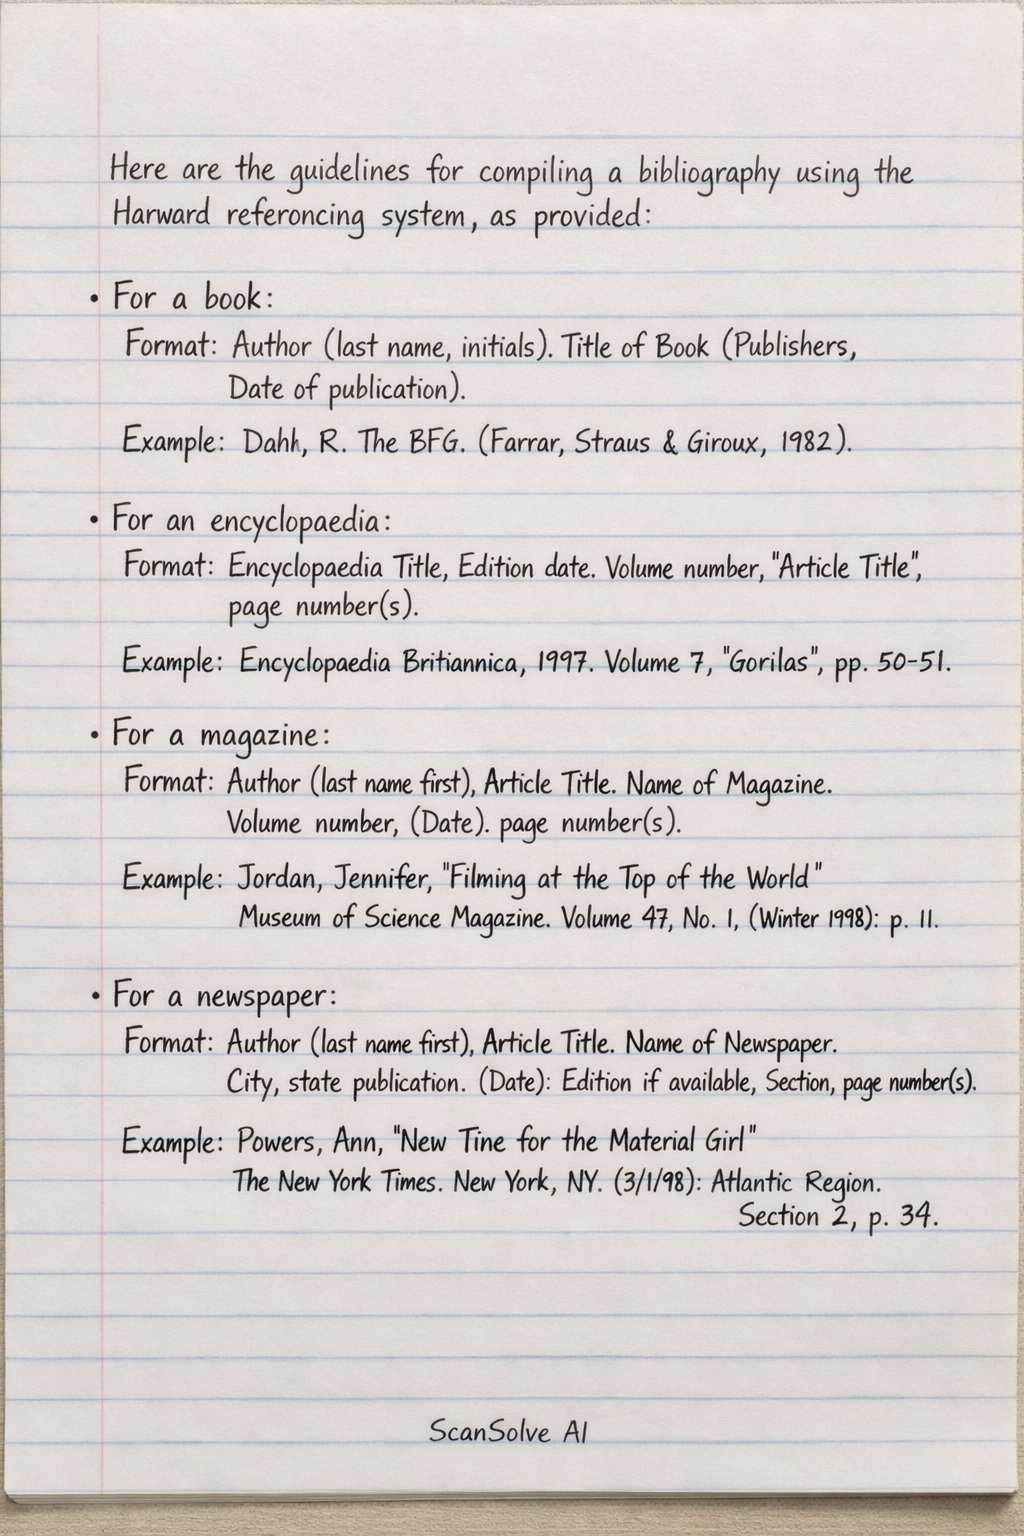 Here are the guidelines for compiling a bibliography using the
Harward referoncing system, as provided:
• For a book:
Format: Author (last name, initials). Title of Book (Publishers,
Date of publication).
Example: Dahh, R. The BFG. (Farrar, Straus & Giroux, 1982).
• For an encyclopaedia:
Format: Encyclopaedia Title, Edition date. Volume number, "Article Title",
page number(s).
Example: Encyclopaedia Britiannica, 1997. Volume 7, "Gorilas", pp. 50-51.
• For a magazine:
Format: Author (last name first), Article Title. Name of Magazine.
Volume number, (Date). page number(s).
Example: Jordan, Jennifer, "Filming at the Top of the World"
Museum of Science Magazine. Volume 47, No. 1, (Winter 1998): p. 11.
• For a newspaper:
Format: Author (last name first), Article Title. Name of Newspaper.
City, state publication. (Date): Edition if available, Section, page number(s).
Example: Powers, Ann, "New Tine for the Material Girl"
The New York Times. New York, NY. (3/1/98): Atlantic Region.
Section 2, p. 34.
ScanSolve AI